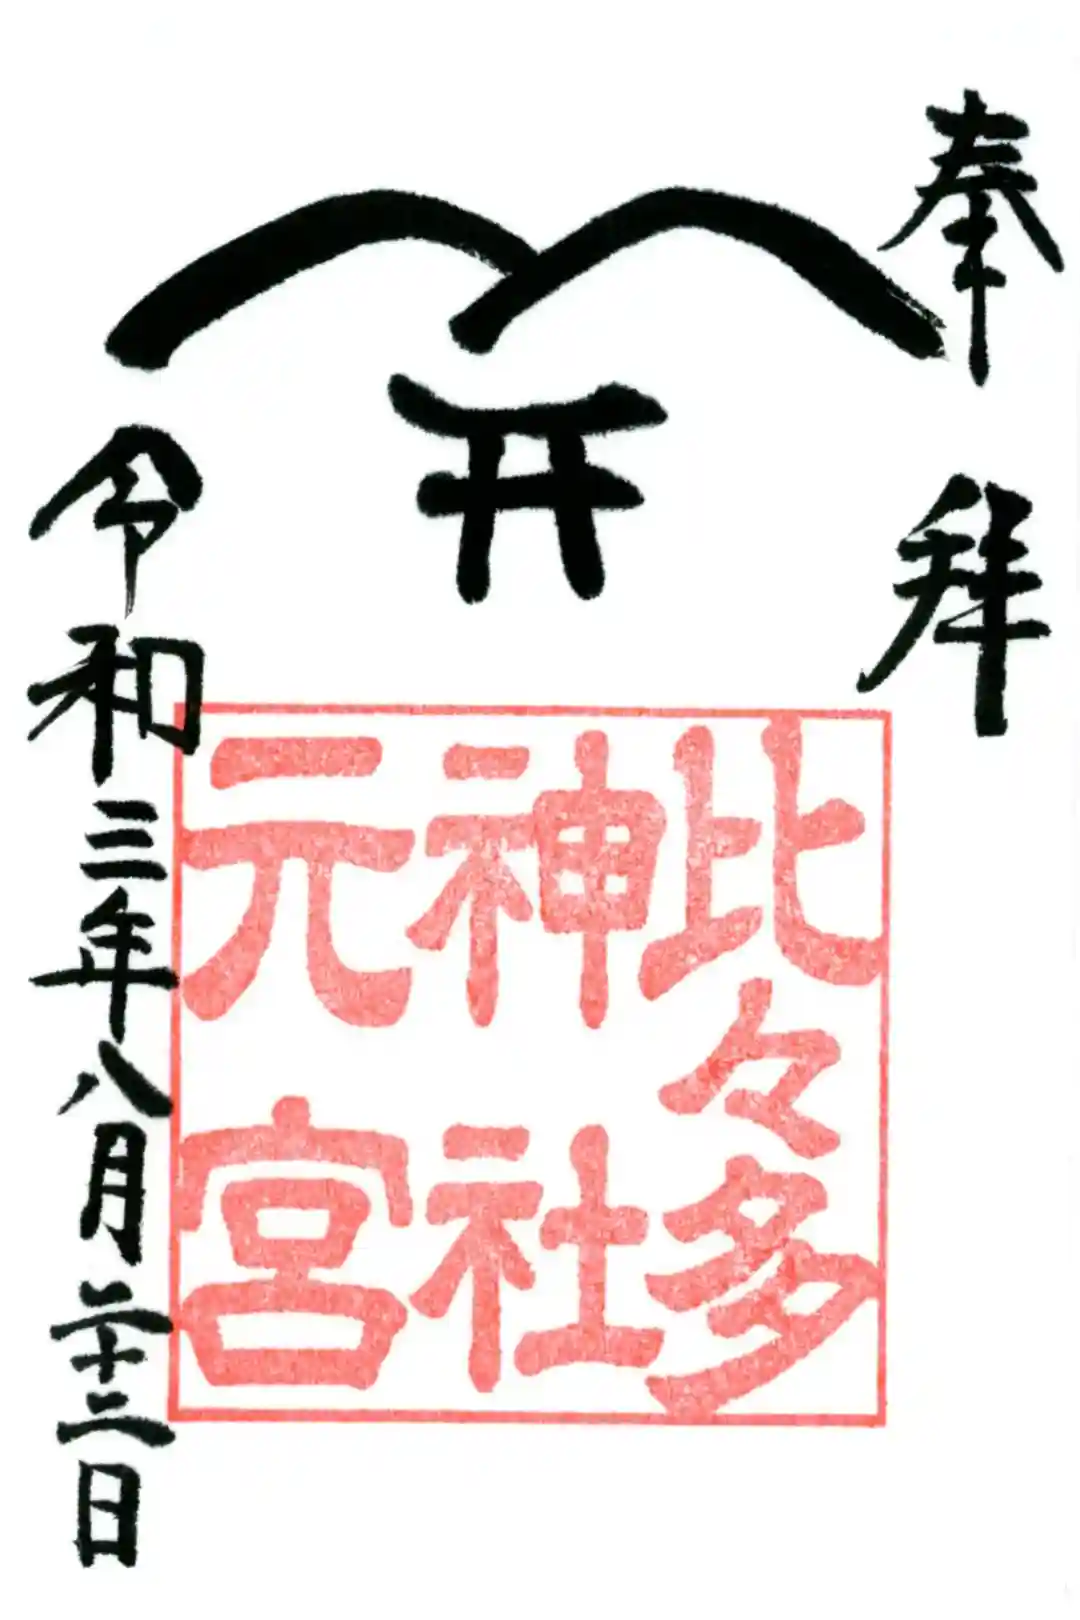 奉拝
比々多
神社
元宮
令和三年八月二十二日